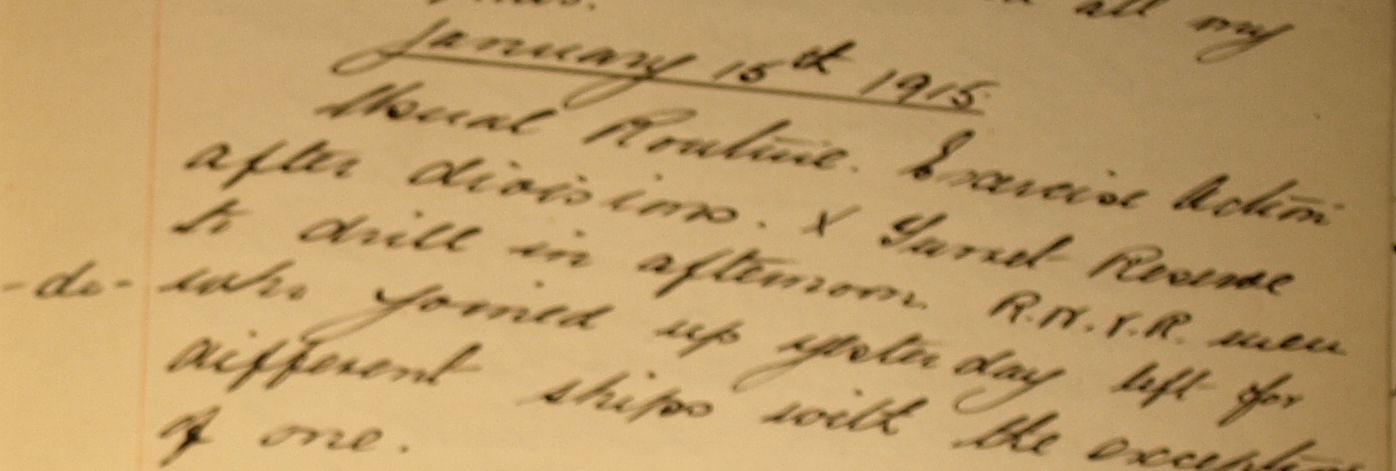 all my
January 15th 1915.
Usual Routine. Exercise Action
after divisions. X Turret Reserve
to drill in afternoon. R.N.V.R. men
-do- who joined up yesterday left for
different ships with the exception
of one.